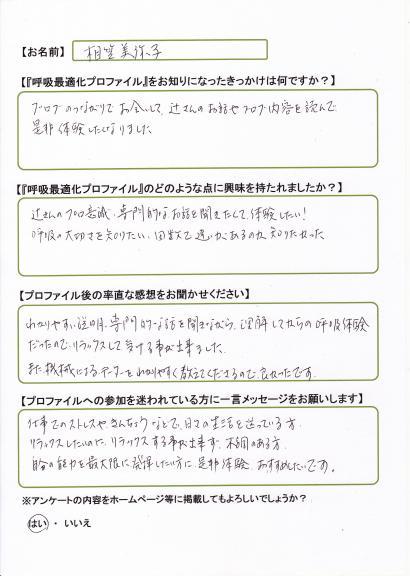 【お名前】 相笠美弥子
【『呼吸最適化プロファイル』をお知りになったきっかけは何ですか？】
ブログのつながりでお会いして、辻さんのお話やブログ内容を読んで
是非体験したくなりました。
【『呼吸最適化プロファイル』のどのような点に興味を持たれましたか？】
辻さんのプロ意識、専門的なお話を聞きたくて、体験したい！
呼吸の大切さを知りたい、回数で違いがあるのか知りたかった
【プロファイル後の率直な感想をお聞かせください】
わかりやすい説明、専門的な話を聞きながら、理解してからの呼吸体験
だったので、リラックスして受ける事が出来ました。
また機械によるデーターをわかりやすく教えてくださるので良かったです。
【プロファイルへの参加を迷われている方に一言メッセージをお願いします】
仕事でのストレスやきんちょうなどで、日々の生活を送っている方、
リラックスしたいのに、リラックスする事が出来ず、不調のある方、
自分の能力を最大限に発揮したい方に是非体験おすすめしたいです。
※アンケートの内容をホームページ等に掲載してもよろしいでしょうか？
はい ・ いいえ